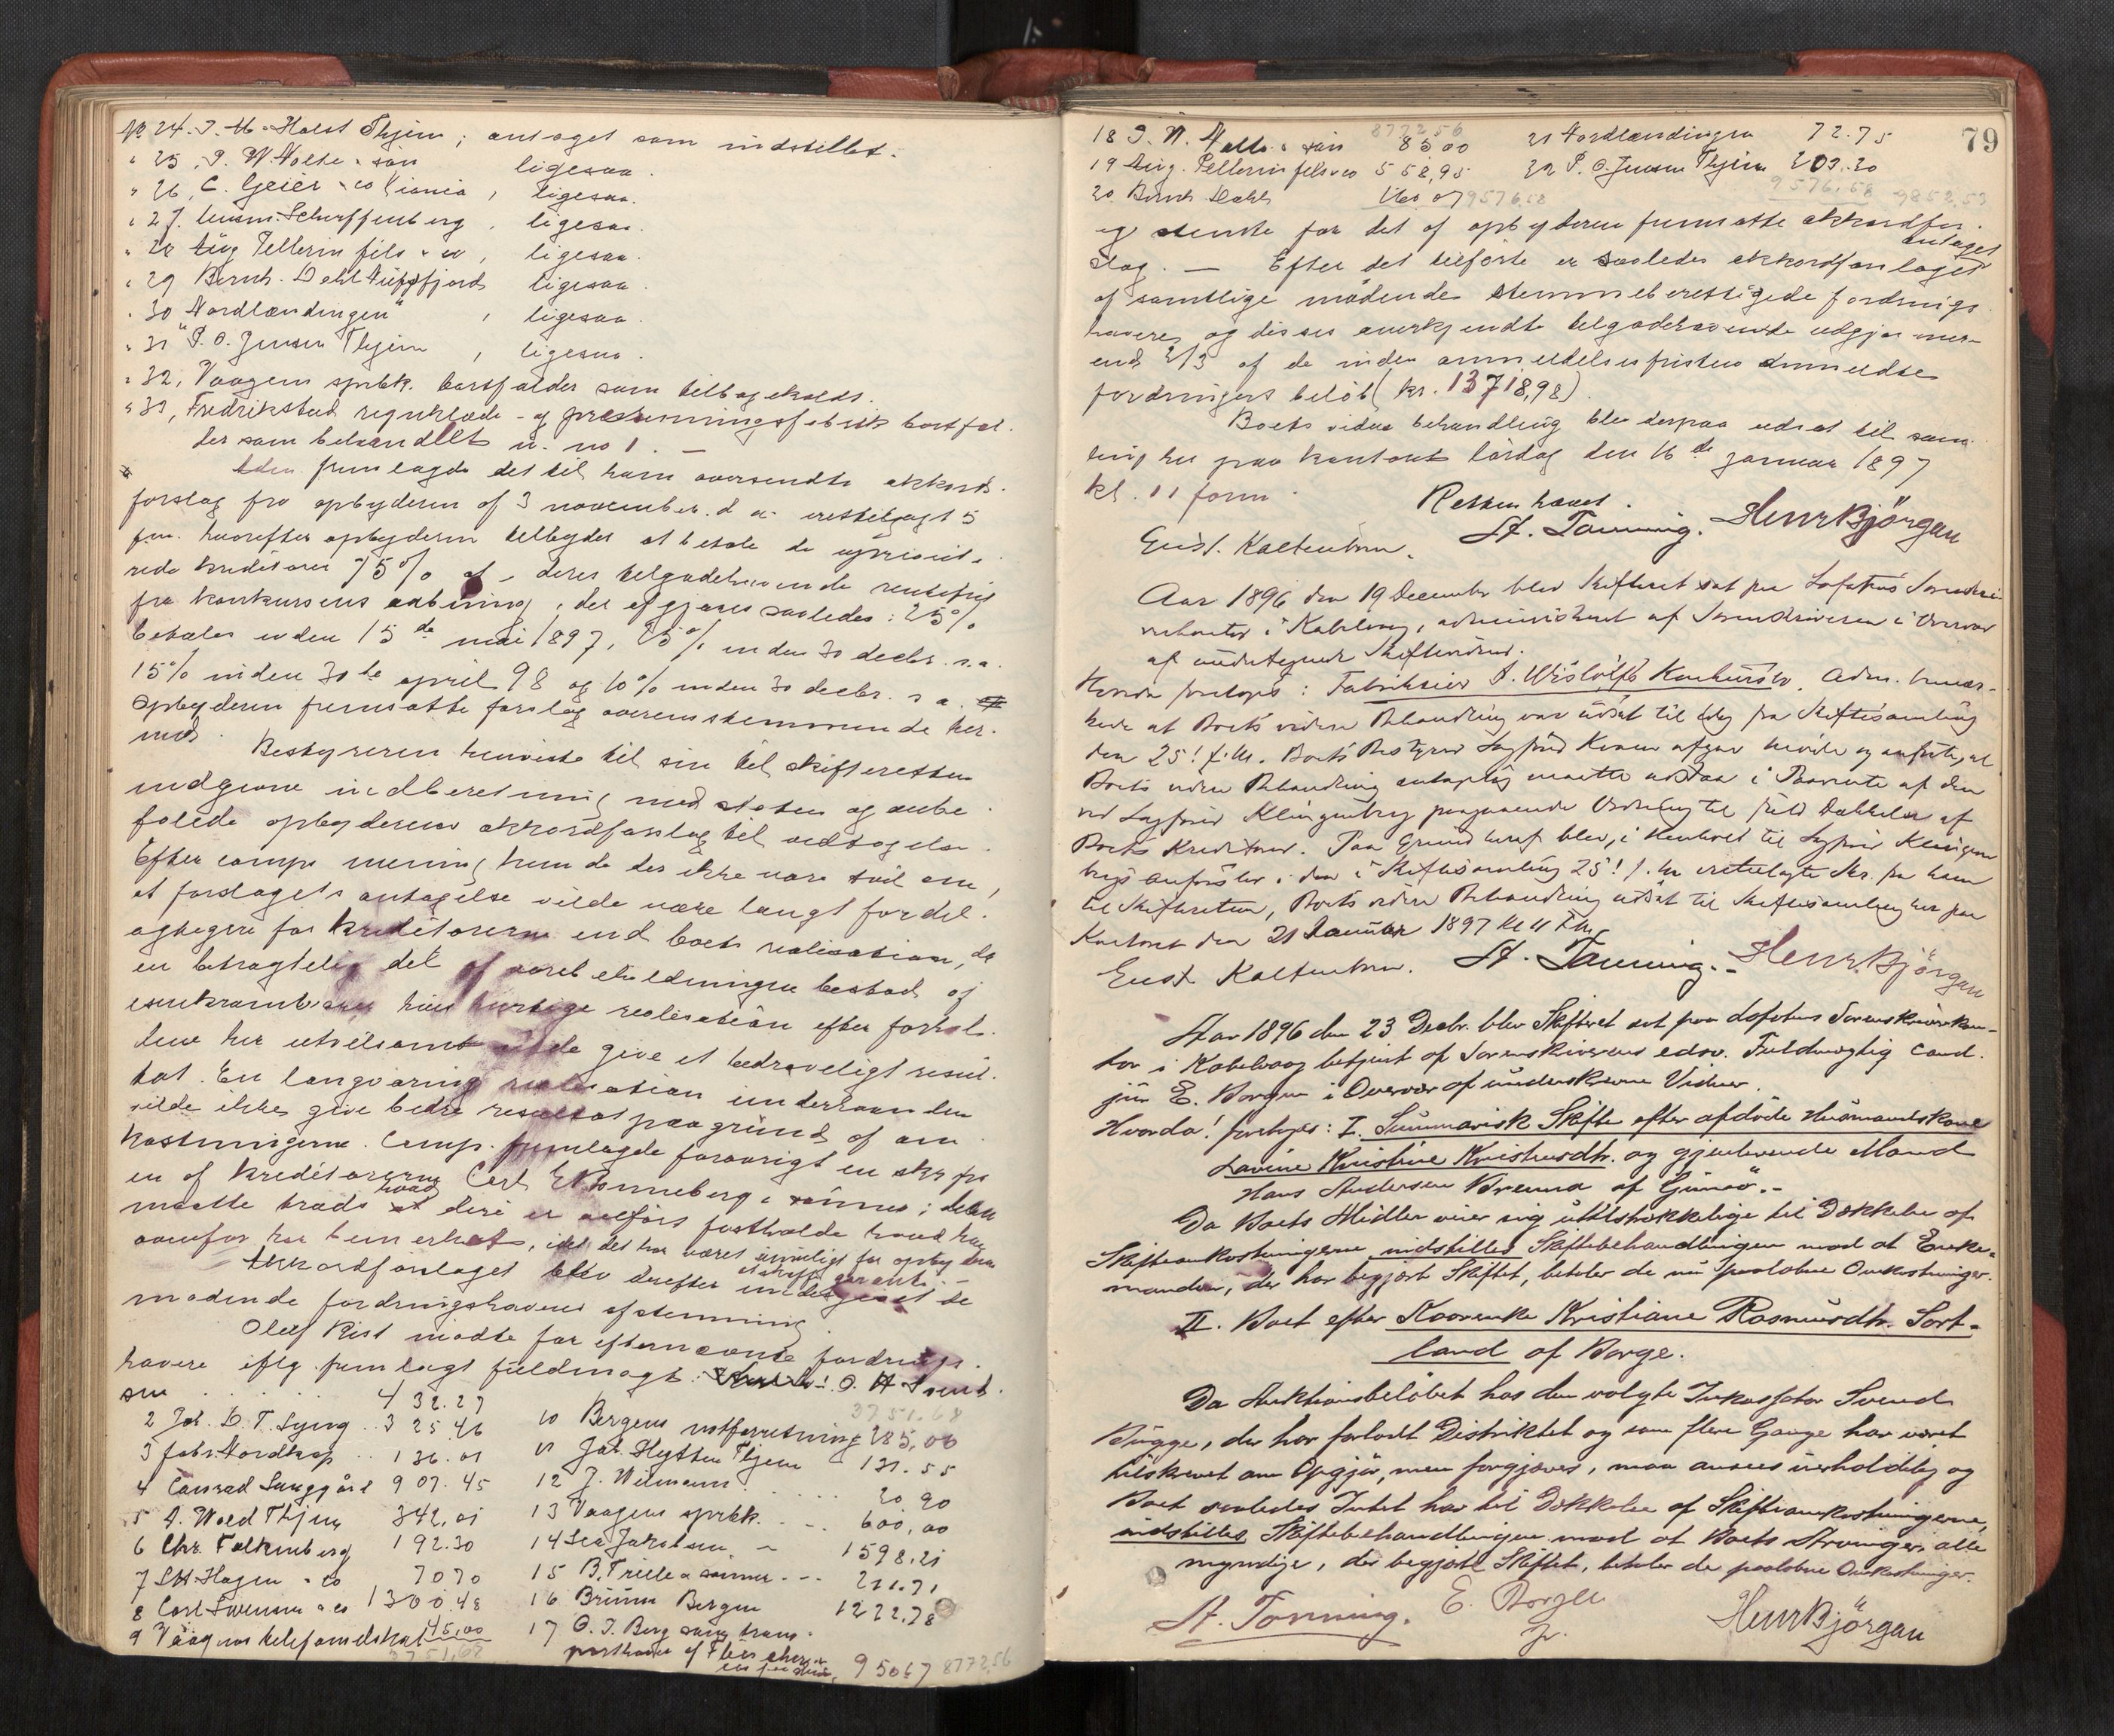 No 24. J. M. Holst Thjem; antaget som indstillet.
" 25, J. W Nolte & søn ligesaa.
" 26, C. Geier & co Kiania, ligesaa.
" 27. Scharffenberg, ligesaa.
" 28 Aug Pellerin fils & co, ligesaa.
" 29 Bernh. Dahl fjord ligesaa.
" 30 "Nordlændingen", ligesaa.
" 31 P. O. Jensen Thjem, ligesaa.
" 32, Vaagens sprbk. bortfalder som tilbagekaldt.
" 33, Fredrikstad - og presenningsfabrik bortfal-
der som behandlet u. no 1. —
fremlagde det til ham oversendte akkord-
forslag fra opbyderen af 3 november d. a.
hvorefter opbyderen tilbyder at betale de uprivilige-
rede kreditorer 75% af deres tilgodehavende rentefrit
fra konkursens aabning, der afgjøres saaledes: 25%
betales inden 15de mai 1897, 25% inden 30 decbr. s. a.
15% inden 30te april 98 og 10% inden 30 decbr. s a.
Opbyderen fremsatte forslag overensstemmende her-
med.
Bestyreren henviste til sin til skifteretten
indgivne indberetning med status og anbe-
falede opbyderens akkordforslag til vedtagelse.
Efter comps mening kunde der ikke være tvil om,
at forslagets antagelse vilde være langt fordel-
agtigere for kreditorerne end boets realisation, da
en betragtelig del af varebeholdningen bestod af
hurtige realisation efter forhol-
dene her utvilsomt vilde give et bedrøveligt resul-
tat. En langvarig realisation underhaanden
vilde ikke give bedre resultat paa grund af om-
kostningerne. Comp. fremlagde forøvrigt en skr fra
en af kreditorerne Carl E Rønneberg & sønner; deben
maatte trods hvad deri er anført fastholde hvad han
ovenfor har bemerket, idet det har været umuligt for opbyderen
at skaffe garanti. —
Akkordforslaget blev derefter undergivet de
mødende fordringshaveres afstemning.
Oluf Rist mødte for efternævnte fordrings-
havere iflg. fremlagt fuldmagt: O. A
sen . . . . . 432.27
2 Joh. L. T. Lyng . . 325 46
3 fabr. Nordkap . . 136.01
4 Conrad Langgård 907.45
5 A. Wold Thjem 342,01
6 Chr. Falkenberg 192.30
7 S H. Hagen & co 7070
8 Carl Svensen & co 1300.48
9 Vaagens telefonselskab 45,00
3751,68
3751.68
10 Bergens notforretning 285,00
11 Joh. Hytten Thjem 131.55
12 J. Wilmann . . . . 20 90
13 Vaagens sprbk. . . . 600,00
14 Lea Jakobsen ~ 1598,21
15 B. Friele & sønner . - - 211.71
16 Brunn Bergen 1222.78
17 O. J. Berg som trans-
porthaver af Fleischer
950 67 8772,56
79
877256
18 J. W. Nolte & søn 8500
19 Aug. Pellerin fils & co 558,95
20 Bernh Dahl 160 07 9576,58
21 Nordlændingen 72.75
22 P. O. Jensen Thjem 203.20
9576,58 9852,53
og stemte for det af opbyderen fremsatte akkordfor-
slag. — Efter det tilførte er saaledes akkordforslaget antaget
af samtlige mødende stemmeberettigede fordrings-
havere, og disses anerkjendte tilgodehavende udgjør mer-
end 2/3 af de inden anmeldelsesfristen anmeldte
fordringers beløb (kr. 13718,98).
Boets videre behandling blev derpaa udsat til sam-
ling her paa kontoret lørdag den 16de januar 1897
kl. 11 form.
Retten hævet.
Eust. Kaltenborn. A. Tonning. Henr Bjørgan
Aar 1896 den 19 December blev Skifteret sat paa Lofotens Sorenskri-
verkontor i Kabelvaag, administreret af Sorenskriveren i Overvær
af undertegnede Skiftevidner.
Hvorda foretoges: Fabrikeier J. Konkursbo. Adm. bemær-
kede at Boets videre Behandling var udsat til idag fra Skiftesamling
den 25! f. M. Boets Bestyrer Sagfører afgav Møde og anførte, at
Boets videre Behandling antagelig maatte udstaa i Paavente af den
ved Sagfører Klingenberg paagaaende Ordning til fuld Dækkelse af
Boets Kreditorer. Paa Grund heraf blev, i Henhold til Sagfører Klingen-
bergs Anførsler i den i Skiftesamling 25! f. M. fra ham
til Skifteretten, Boets videre Behandling udsat til Skiftesamling her paa
Kontoret den 21 Januar 1897 Kl 11 Fm.
Eust Kaltenborn. A. Tonning. Henr. Bjørgan
Aar 1896 den 23 Decbr. blev Skifteret sat paa Lofotens Sorenskriverkon-
tor i Kabelvaag betjent af Sorenskriverens edsv. Fuldmægtig cand.
jur E. Borgen i Overvær af underskrevne Vidner.
Hvorda! foretoges: I. Summarisk Skifte efter afdøde Husmandskone
Lavine Kristine Kristensdtr. og gjenlevende Mand
Hans Andersen Brenna af Gimsø.-
Da Boets Midler viser sig utilstrækkelige til Dækkelse af
Skifteomkostningerne indstilles Skiftebehandlingen mod at Enke-
manden, der har begjært Skiftet, betaler de nu paaløbne Omkostninger.
II. Boet efter Kaarenke Kristiane Rasmusdtr. Sort-
land af Borge.
Da Auktionsbeløbet hos den valgte Inkassator Svend
Bugge, der har forladt Distriktet og som flere Gange har været
tilskrevet om Opgjør, men forgjæves, maa ansees uerholdelig og
Boet saaledes Intet har til Dækkelse af Skifteomkostningerne,
indstilles Skiftebehandlingen mod at Boets Arvinger, alle
myndige, der begjærte Skiftet, betaler de paaløbne Omkostninger.
A. Tonning. E. Borgen Henr Bjørgan